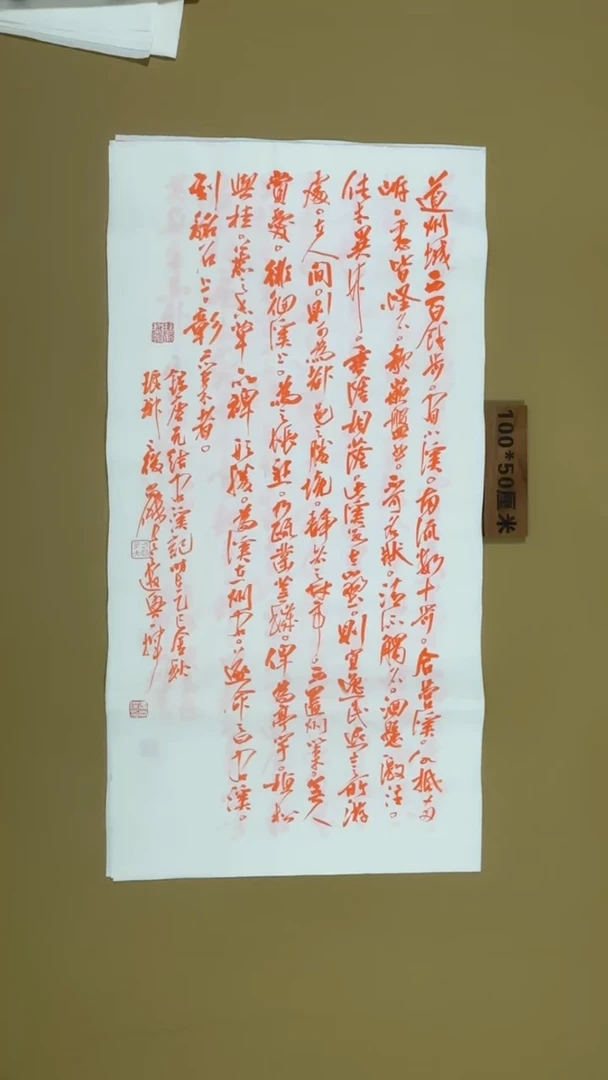 道州城西百餘步。有小溪。南流數十步。合營溪。水抵兩
岸。悉皆怪石。欹嵌盤屈。不可名狀。清流觸石。洄懸激注。
佳木異竹。垂陰相蔭。此溪若在山野。則宜逸民退士之所游
處。在人間。則可為都邑之勝境。靜者之林亭。而置州以來。無人
賞愛。徘徊溪上。為之悵然。乃疏鑿蕪穢。俾為亭宇。植松
與桂。兼之香草。以裨形勝。為溪在州右。遂命之曰右溪。
刻銘石上。彰示來者。
錄唐元結右溪記時乙巳金秋
100*50厘米